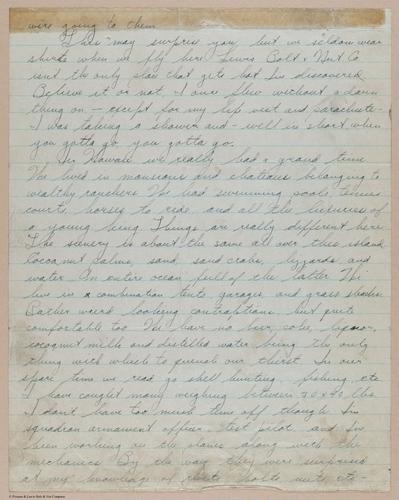 were going to them
This may surprise you but we seldom wear
shirts when we fly here. Lewis Bolt & Nut Co
isn't the only place that gets hot I've discovered.
Believe it or not, I once flew without a darn
thing on — except for my life vest and parachute -
I was taking a shower and - well in short when
you gotta go, you gotta go.
In Hawaii we really had a grand time
We lived in mansions and chateaus belonging to
wealthy ranchers We had swimming pools, tennis
courts, horses to ride and all the luxuries of
a young king. Things are really different here
The scenery is about the same all over this island
Cocoanut palms, sand, sand crabs, lizzards and
water. An entire ocean full of the latter. We
live in a combination tents garages and grass shacks
Rather weird looking contraptions but quite
comfortable too. We have no beer, coke, liquor,
cocoanut milk and distilled water being the only
thing with which to quench our thirst. In our
spare time we read go shell hunting, fishing, etc
I have caught many weighing between 30 & 40 lbs
I don't have too much time off though I'm
squadron armament officer, test pilot and I've
been working on the planes along with the
mechanics By the way they were surprised
at my knowledge of rivets bolts nuts etc -